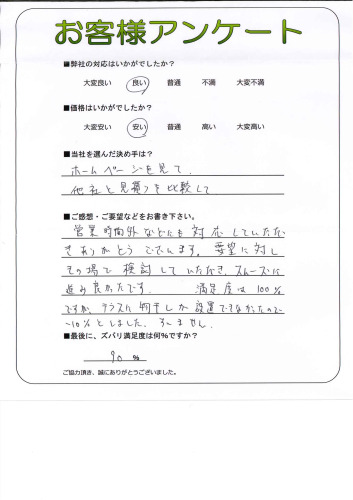 お客様アンケート
■弊社の対応はいかがでしたか？
大変良い 良い 普通 不満 大変不満
■価格はいかがでしたか？
大変安い 安い 普通 高い 大変高い
■当社を選んだ決め手は？
ホームページを見て、
他社と見積りを比較して
■ご感想・ご要望などをお書き下さい。
営業時間外などにも対応していただ
きありがとうございます。要望に対し
その場で検討していただき、スムーズに
進み良かったです。 満足度は100%
ですが、テラスに物干しが設置できなかったので
-10%としました。すいません。
■最後に、ズバリ満足度は何%ですか？
90 %
ご協力頂き、誠にありがとうございました。